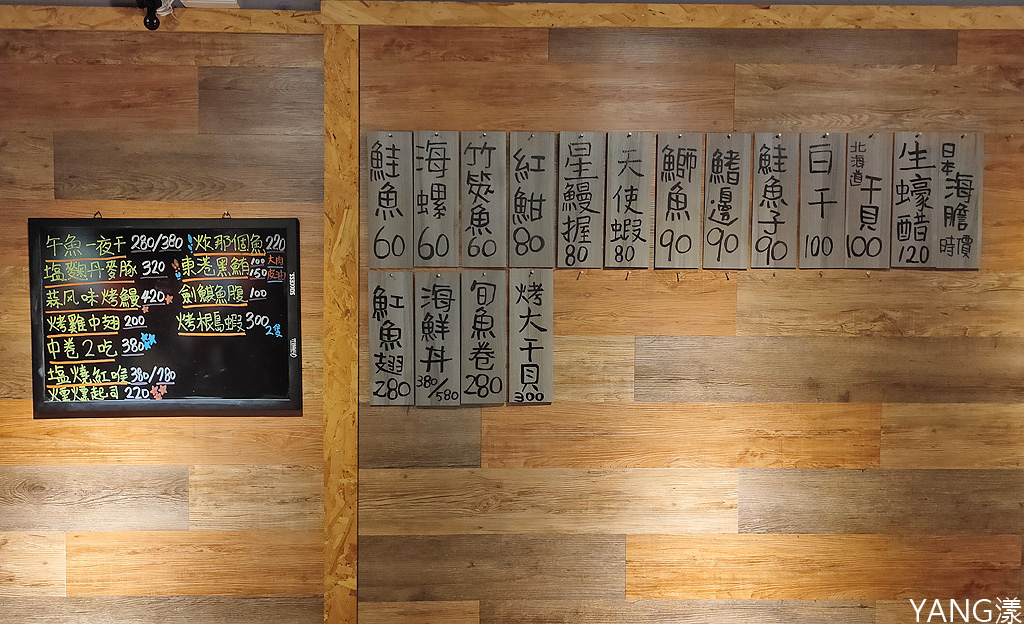 午魚一夜干 280/380
塩麴丹麥豚 320
蒜風味烤鰻 420
烤雞中翅 200
中卷2吃 380
塩燒紅喉 380/780
燻燻起司 220
炊那個魚 220
東港黑鮪 100 大肉
150
劍旗魚腹 100
烤根島蝦 300 2隻
SUCCESS
鮭魚 60
海螺 60
竹筴魚 60
紅魽 80
星鰻握 80
天使蝦 80
鰤魚 90
鰭邊 90
鮭魚子 90
白干 100
北海道干貝 100
生蠔醋 120
日本海膽 時價
魟魚翅 280
海鮮丼 380/580
旬魚卷 280
烤大干貝 300
YANG漾